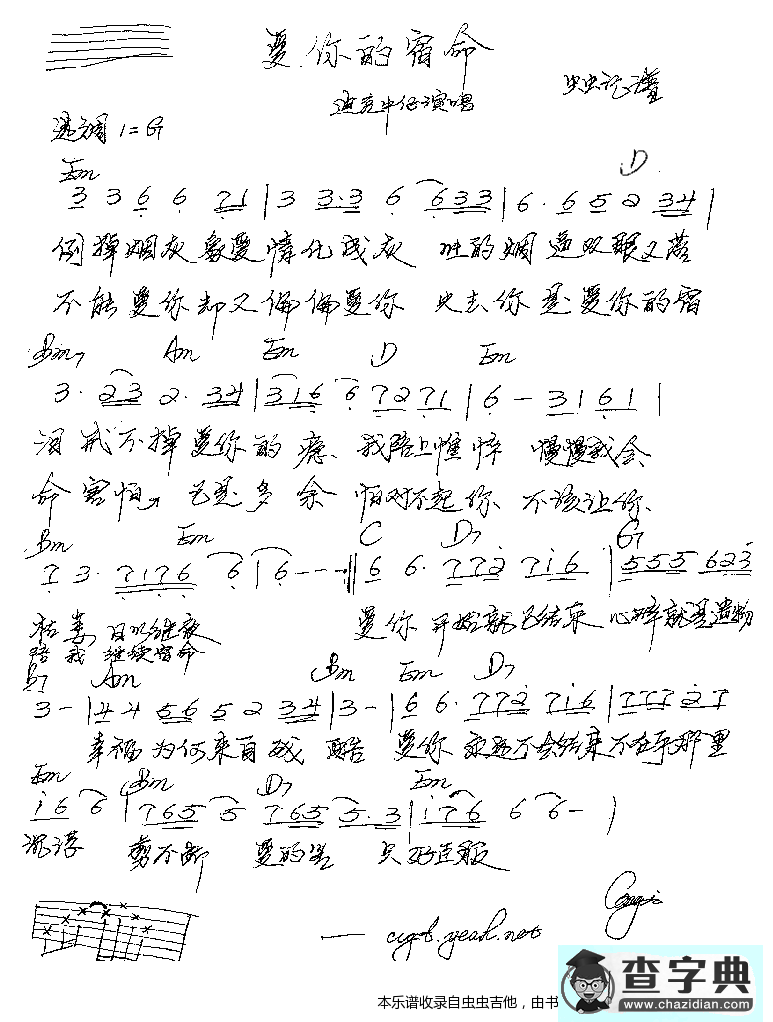 爱你的宿命
迪克牛仔演唱
虫虫记谱
选调 1=G
Em D
3 3 6 6 71 | 3 3.3 6 633 | 6. 6 5 2 34 |
倒掉烟灰 象爱情化成灰 吐的烟 逼双眼又落
不能爱你却又偏偏爱你 失去你是爱你的宿
Bm7 Am Em D Em
3. 23 2. 34 | 316 6 7271 | 6 - 31 61 |
泪 戒不掉爱你的瘾 我陪上憔悴 慢慢我会
命 害怕 已是多余 怕对不起你 不该让你
Bm Em C D7 G
7 3. 7176 6 | 6 - - - || 6 6. 772 716 | 555 623
枯萎 日以继夜 爱你 开始就已结束 心碎就是遗物
陪我 继续宿命
B7 Am Bm Em D7
3 - | 44 56 5 2 34 | 3 - | 6 6. 772 716 | 777 27
幸福为何来自残酷 爱你 永远不会结束 不在乎那里
Em Bm D7 Em
1 6 6 | 765 5 765 5.3 | 176 6 6 - |
沉浮 剪不断 爱的苦 只好臣服
本乐谱收录自虫虫吉他，由书
查字典
www.chazidian.com